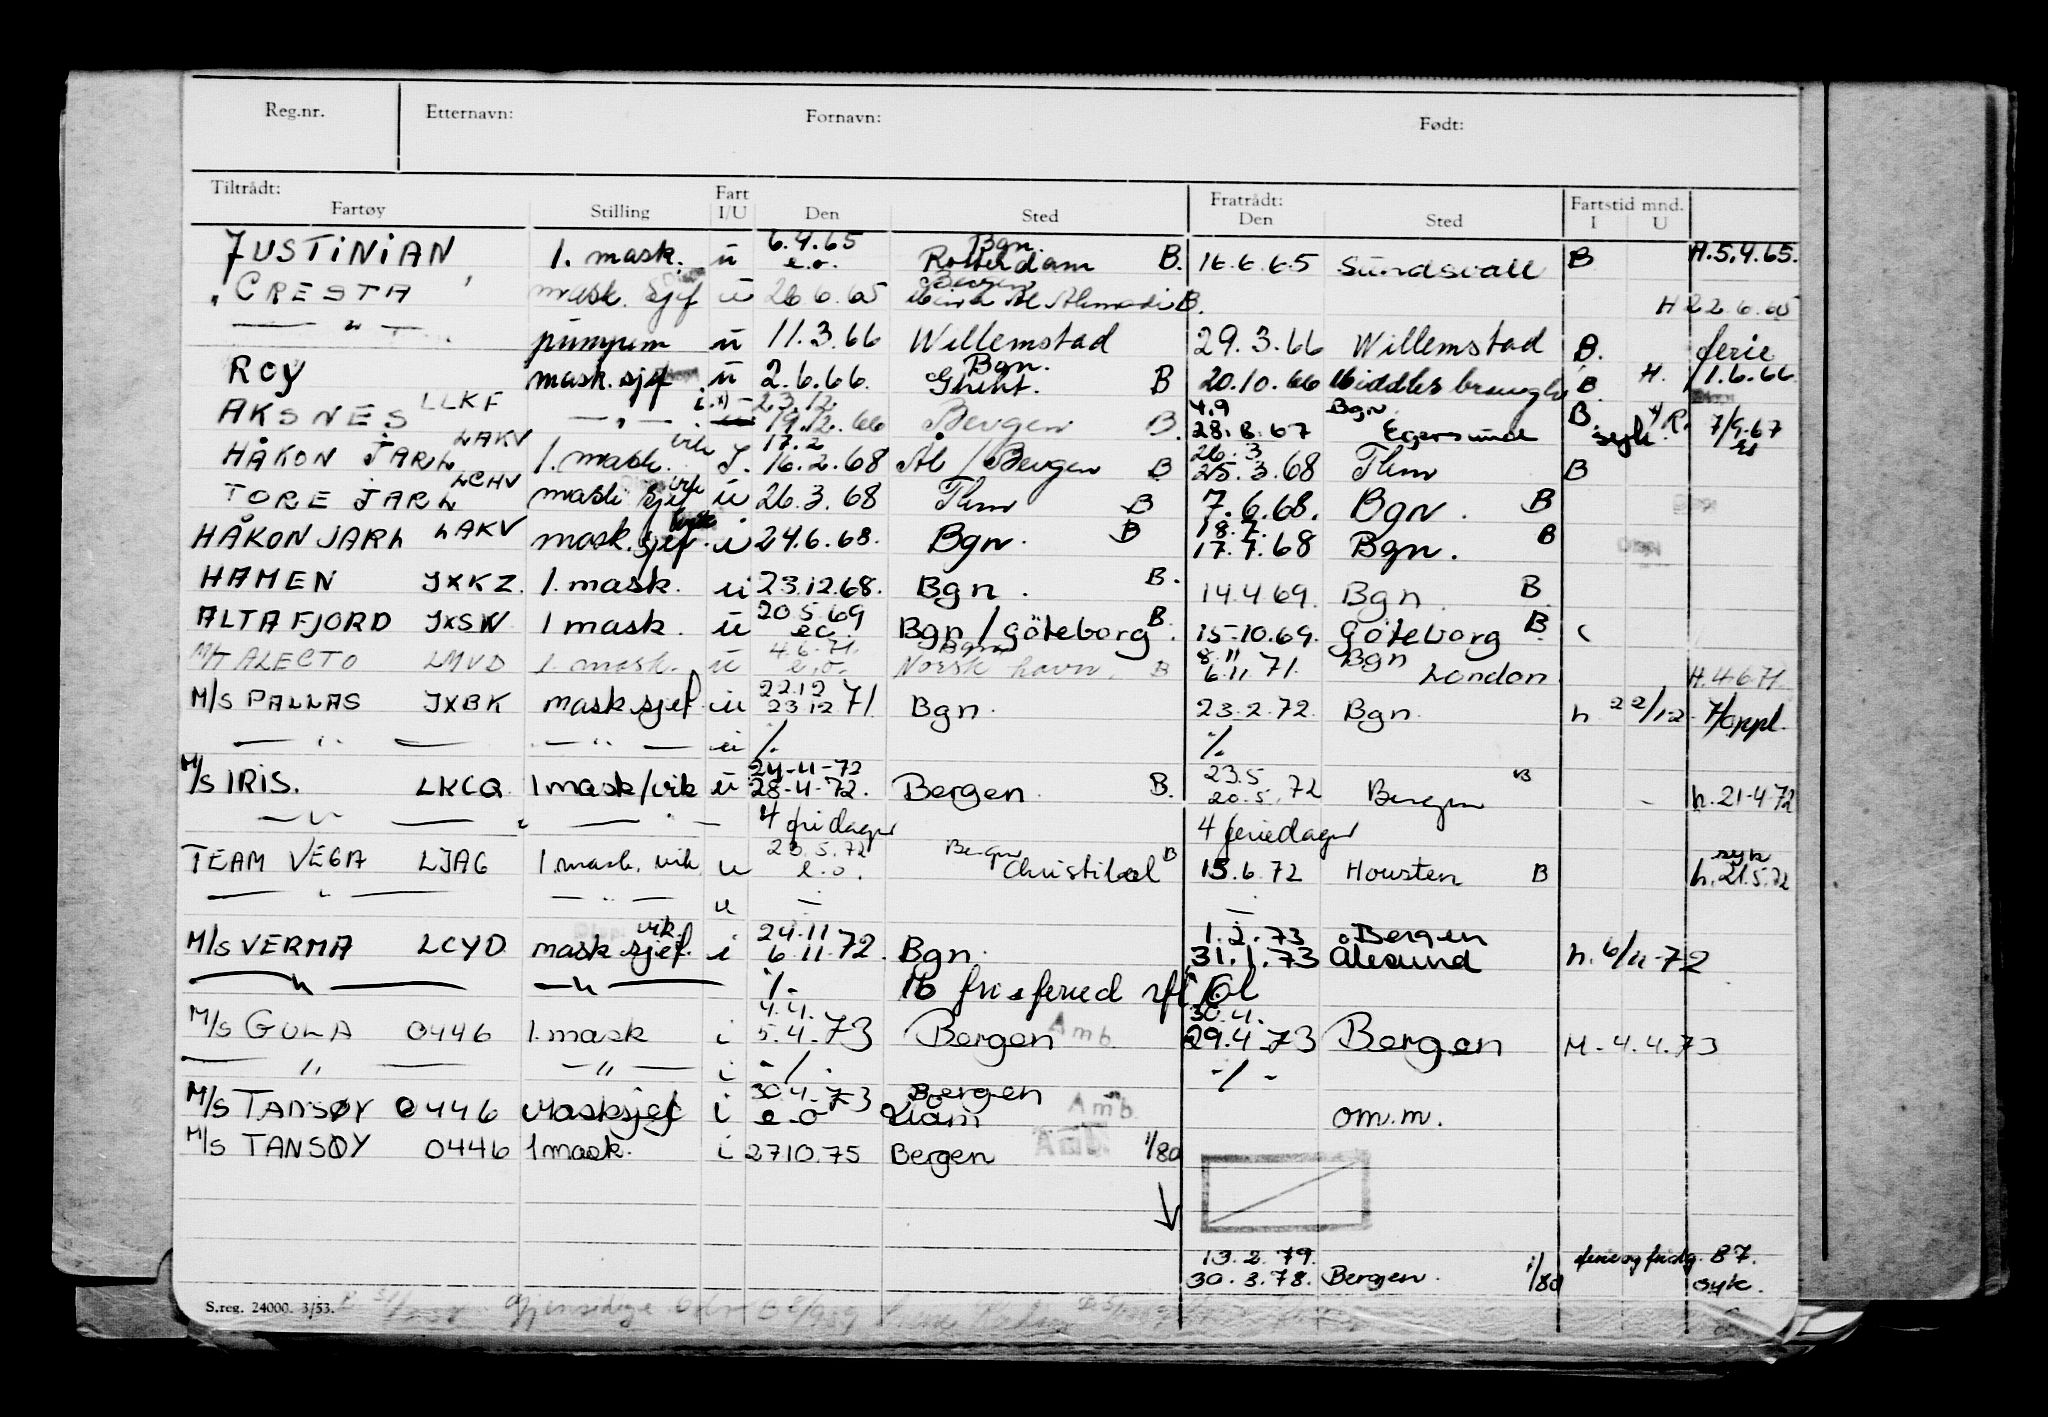 Reg.nr. Etternavn: Fornavn: Født:
Tiltrådt: Fart Fratrådt: Fartstid mnd.
Fartøy Stilling I/U Den Sted Den Sted I U
JUSTINIAN 1. mask. u 6.4.65 e.o. Bgn. Rotterdam B. 16.6.65 Sundsvall B H.5.4.65.
CRESTA mask. sjef u 26 6.65 Bergen Mina Al Ahmadi B. H 22.6.65
— " — pumpem u 11.3.66 Willemstad 29.3.66 Willemstad B. ferie
ROY mask. sjef u 2.6.66. Bgn. Ghent. B 20.10.66 Middlesbrough B H. 1.6.66.
AKSNES LLKF — " — i 23.12. 19.12.66 Bergen B. 4.9 28.8.67 Bgn. Egersund B. syk R. 7/9.67
HÅKON JARL LAKV 1. mask. vik I. 17.2 16.2.68 Ål / Bergen B 26.3 25.3.68 Thm B
TORE JARL LCHV mask sjef vik u 26.3.68 Thm B 7.6.68. Bgn. B
HÅKON JARL LAKV mask. sjef i 24.6.68. Bgn. B 18.7. 17.7.68 Bgn. B
HAMEN JXKZ. 1. mask. u 23.12.68. Bgn. B. 14.4 69. Bgn. B
ALTAFJORD JXSW 1 mask. u 20.5.69 e.o. Bgn / Göteborg B. 15-10.69. Göteborg B
M/T ALECTO LMVD 1. mask. u 4.6.71. e.o. Bgn Norsk havn. B 8.11 6.11.71. Bgn London H.4.6.71
M/S PALLAS JXBK mask.sjef u 22.12 23.12 71. Bgn. 23.2.72. Bgn. h 22/12- 71 oppl.
— " — — " — u ·/. ·/.
M/S IRIS. LKCQ 1 mask/vik u 24-4-72 28-4-72. Bergen B. 23.5 20.5.72 Bergen B h.21-4-72
— " — — " — 4 fridager 4 feriedager
TEAM VEGA LJAG 1 mask. vik u 23.5.72 e.o. Bergen Christobal B 15.6.72 Houston B syk h.21.5.72
— " — — " — u — —
M/S VERMA LCYD mask sjef. vik. i 24.11 6.11.72. Bgn. 1.2.73 31.1.73 Bergen Ålesund h. 6/11-72
— " — — " — ·/. 16 fri & feried
M/S GULA 0446 1. mask i 4.4. 5.4.73 Bergen Amb. 30.4. 29.4.73 Bergen M. 4.4.73
— " — — " — i ·/. ·/.
M/S TANSØY 0446 Masksjef i 30.4.73 e.o Bergen Amb. om.m.
M/S TANSØY 0446 1 mask. i 2710.75 Bergen 1/80
13.2.79. ferie og fridg. 87.
30.3.78. Bergen. 1/80 syk.
S.reg. 24000. 3/53. Gjensidige